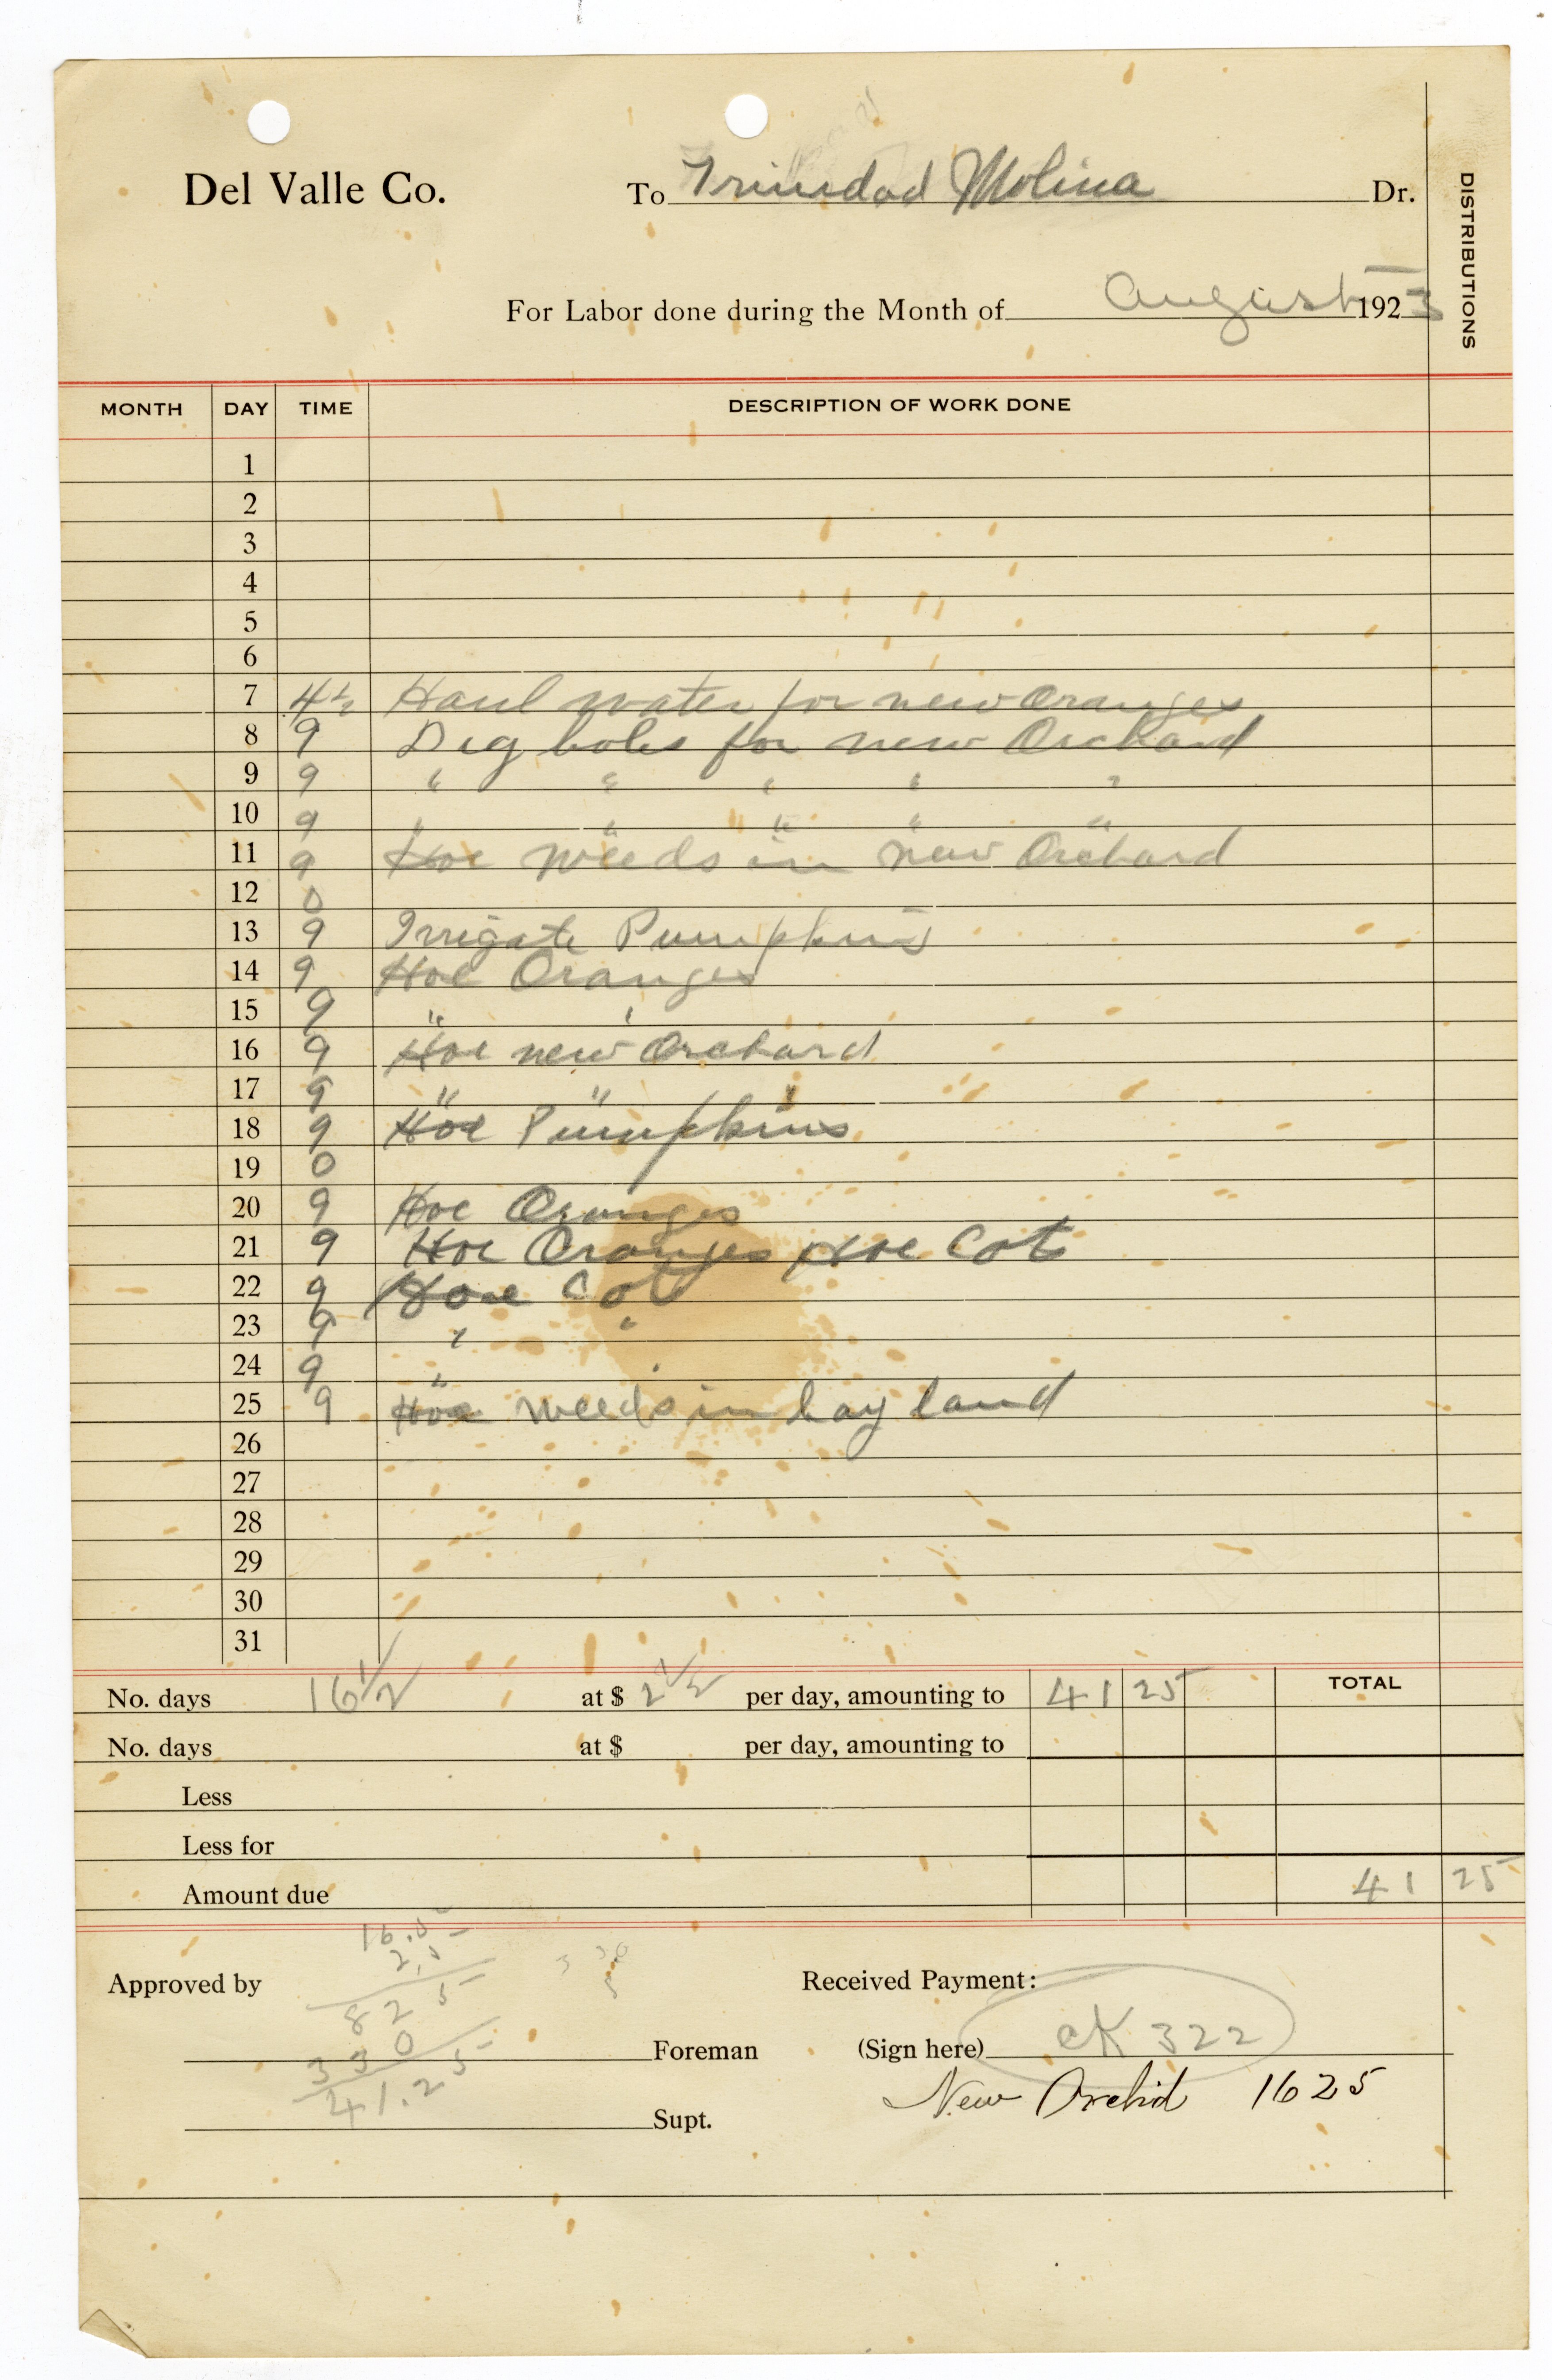 Del Valle Co. To Trinidad Molina Dr.
DISTRIBUTIONS
For Labor done during the Month of August 1923
MONTH DAY TIME DESCRIPTION OF WORK DONE
1
2
3
4
5
6
7 4½ Haul water for new Oranges
8 9 Dig holes for new Orchard
9 9 " " " " "
10 9 " " " " "
11 9 Hoe weeds in new Orchard
12 0
13 9 Irrigate Pumpkins
14 9 Hoe Oranges
15 9 " "
16 9 Hoe new Orchard
17 9 " " "
18 9 Hoe Pumpkins
19 0
20 9 Hoe Oranges
21 9 Hoe Oranges Hoe Cots
22 9 Hoe Cot
23 9 " "
24 9 " "
25 9 Hoe weeds in hay land
26
27
28
29
30
31
No. days 16 1/2 at $ 2 1/2 per day, amounting to 41 25 TOTAL
No. days at $ per day, amounting to
Less
Less for
Amount due 41 25
16.5
2.5
Approved by Received Payment:
825
330
Foreman (Sign here) CK 322
41.25
New Orchd 1625
Supt.